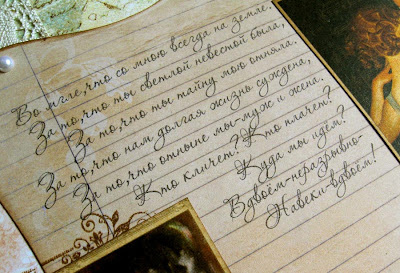 Во мгле,что со мною всегда на земле,
За то,что ты светлой невестой была,
За то,что ты тайну мою отняла.
За то,что нам долгая жизнь суждена,
За то,что отныне мы-муж и жена.
Кто кличет?Кто плачет?
Куда мы идём?
Вдвоём-неразрывно-
Навеки-вдвоём!